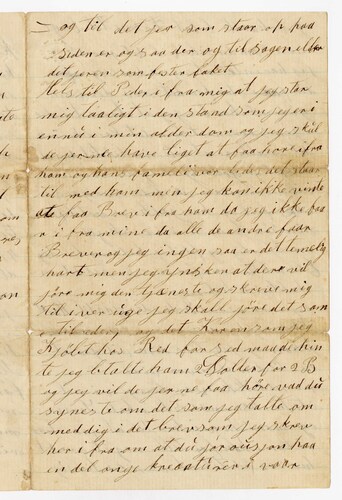 og til det jor som staar op paa
siden er og saa der og til sagen elder
det jeren som foster faket
Hels til Peder i fra mig at jeg star
mig laaligt i den stand som jeg er i
enné i min alder dom og jeg skul
de jerne have liget at faa hore ifra
ham og hans fameli vor ledes det staar
til med ham men jeg kan ikke vinde
at faa Brev i fra ham da jeg ikke faa
r i fra mine da alle de andre faar
Brever og jeg ingen saa er det temelig
hart men jeg ynsken at dere vil
jöre mig den tjæneste og skreve mig
til i ver uge jeg skall jöre det sam
e til eder og det Koren som jeg
Kjöbet hos Red for sed maade hin
te jeg betalte ham 2 Daller for 2 B
og jeg vil de jer ne faa höre vad du
syneste om det som jeg talte om
med dig i det brev som jeg skrev
her i fra om at du jör ousjon paa
en del onje kreaturer i vaar